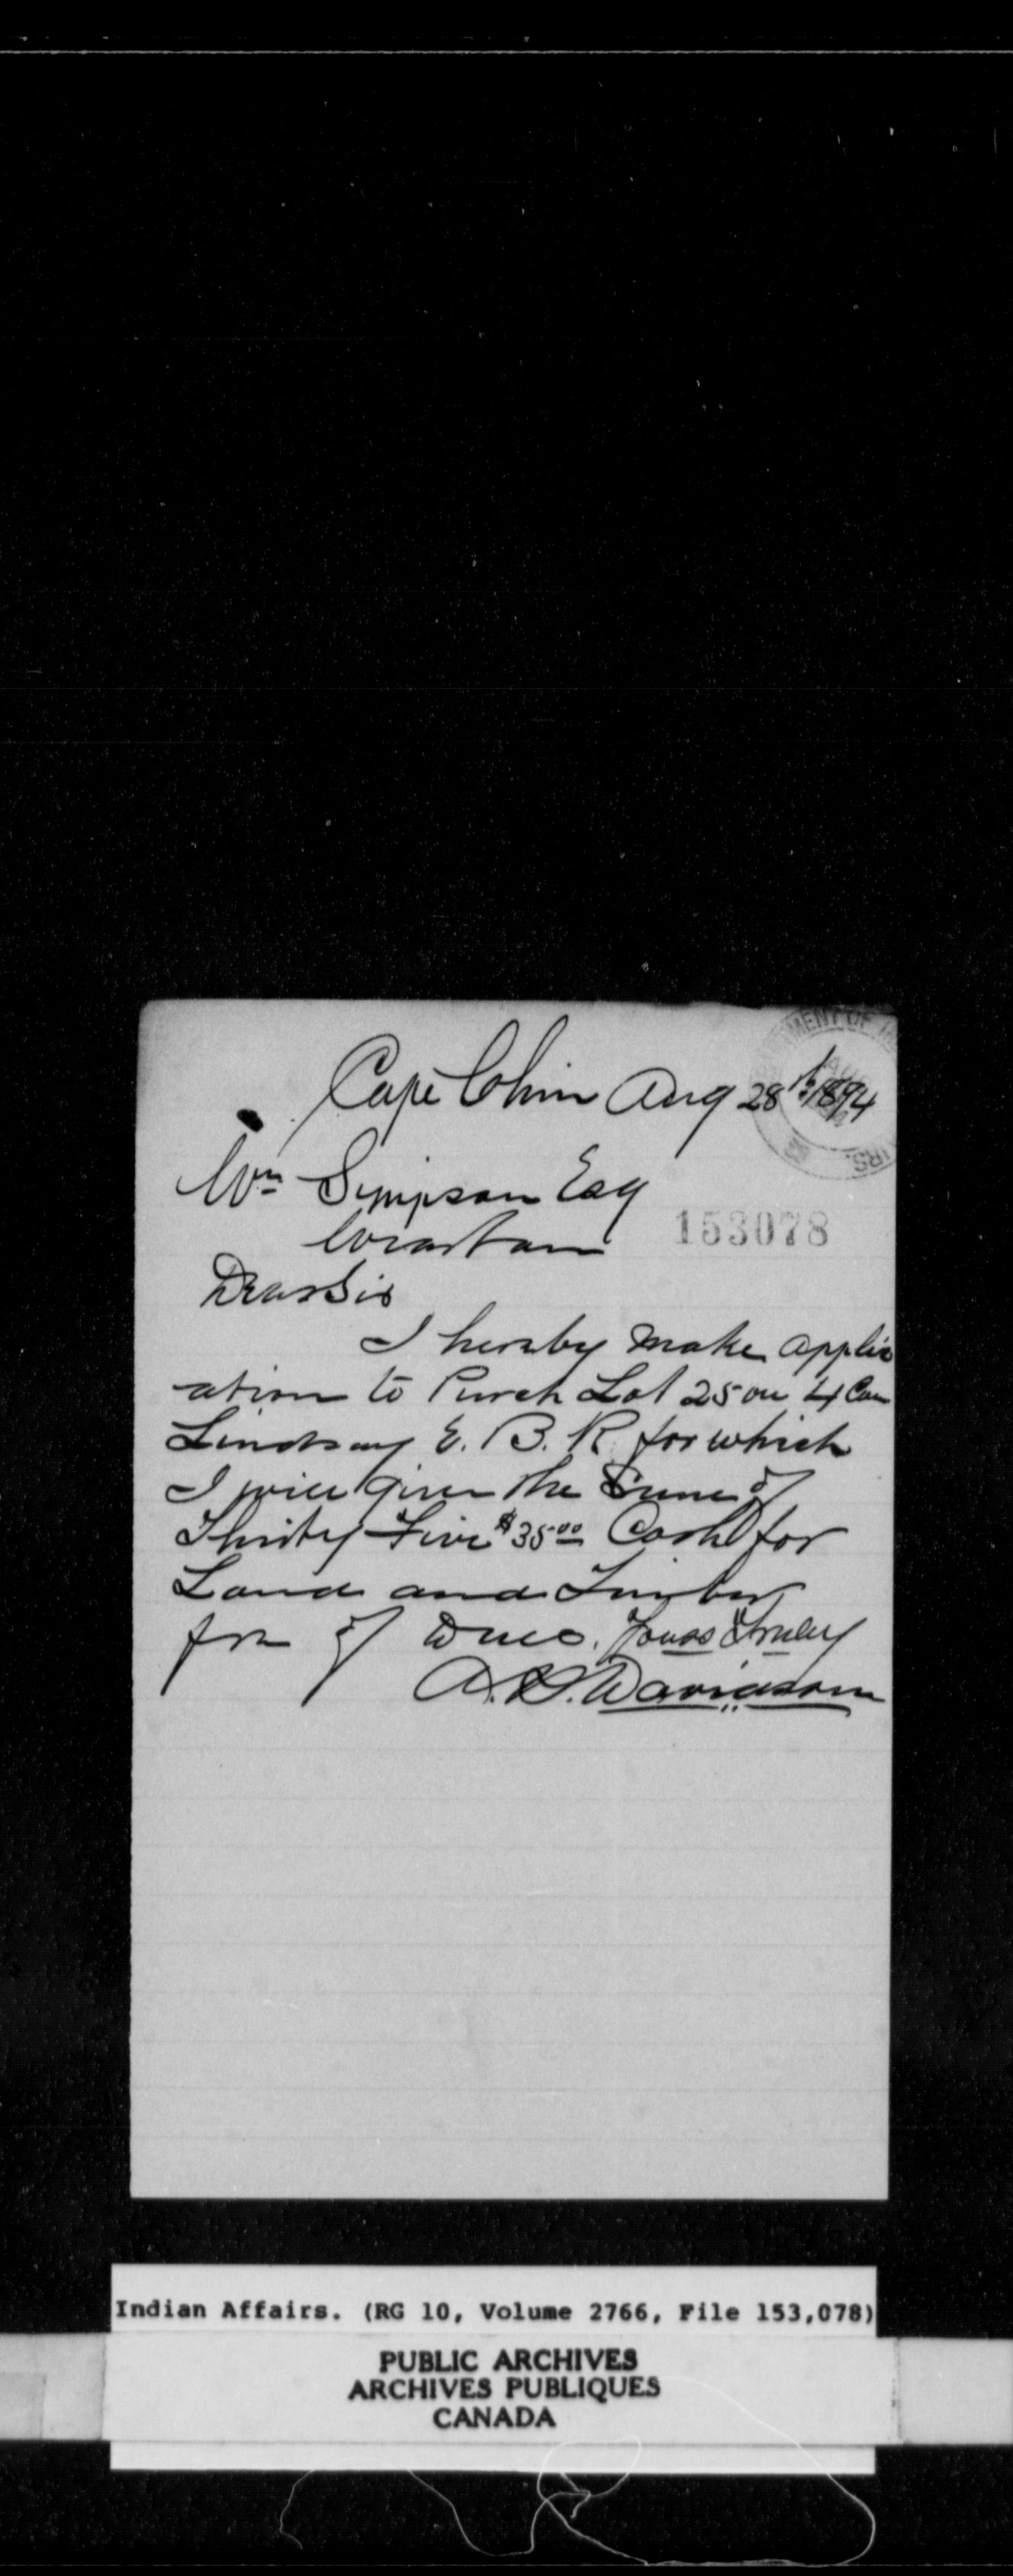 Cape Chin Aug 28th 1894
MENT OF
RS.
Wm Simpson Esq
Wiarton
153078
Dear Sir
I hereby make applic
ation to Purch Lot 25 on 4 Con
Lindsay E. B. R. for which
I will give the Sume of
Thirty Five $35.00 Cash for
Land and Timber
free of Dues. Yours Truly
A. S. Davidson
Indian Affairs. (RG 10, Volume 2766, File 153,078)
PUBLIC ARCHIVES
ARCHIVES PUBLIQUES
CANADA